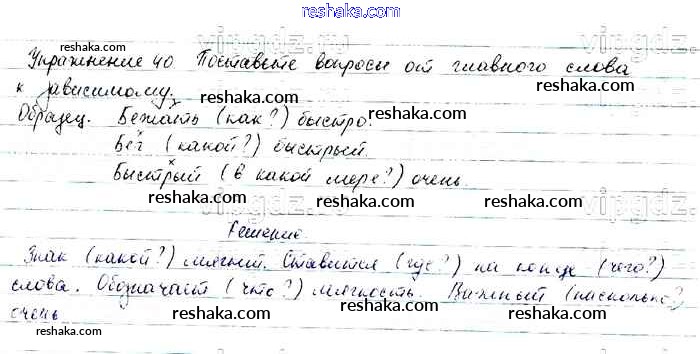 reshaka.com
vipgdz.
vipgdz.
Упражнение 40 Поставьте вопросы от главного слова
reshaka.com
reshaka.com
reshaka.com
к зависимому.
reshaka.com
reshaka.com
Образец. Бежать (как?) быстро.
Бег (какой?) быстрый.
reshaka.com
reshaka.com
Быстрый (в какой мере?) очень.
reshaka.com
reshaka.com
vipgdz.
vipgdz.
Решение
reshaka.com
Знак (какой?) мягкий. Ставится (где?) на конце (чего?)
слова. Обозначает (что?) мягкость. Важный (насколько?)
reshaka.com
очень
reshaka.com
reshaka.com
reshaka.com